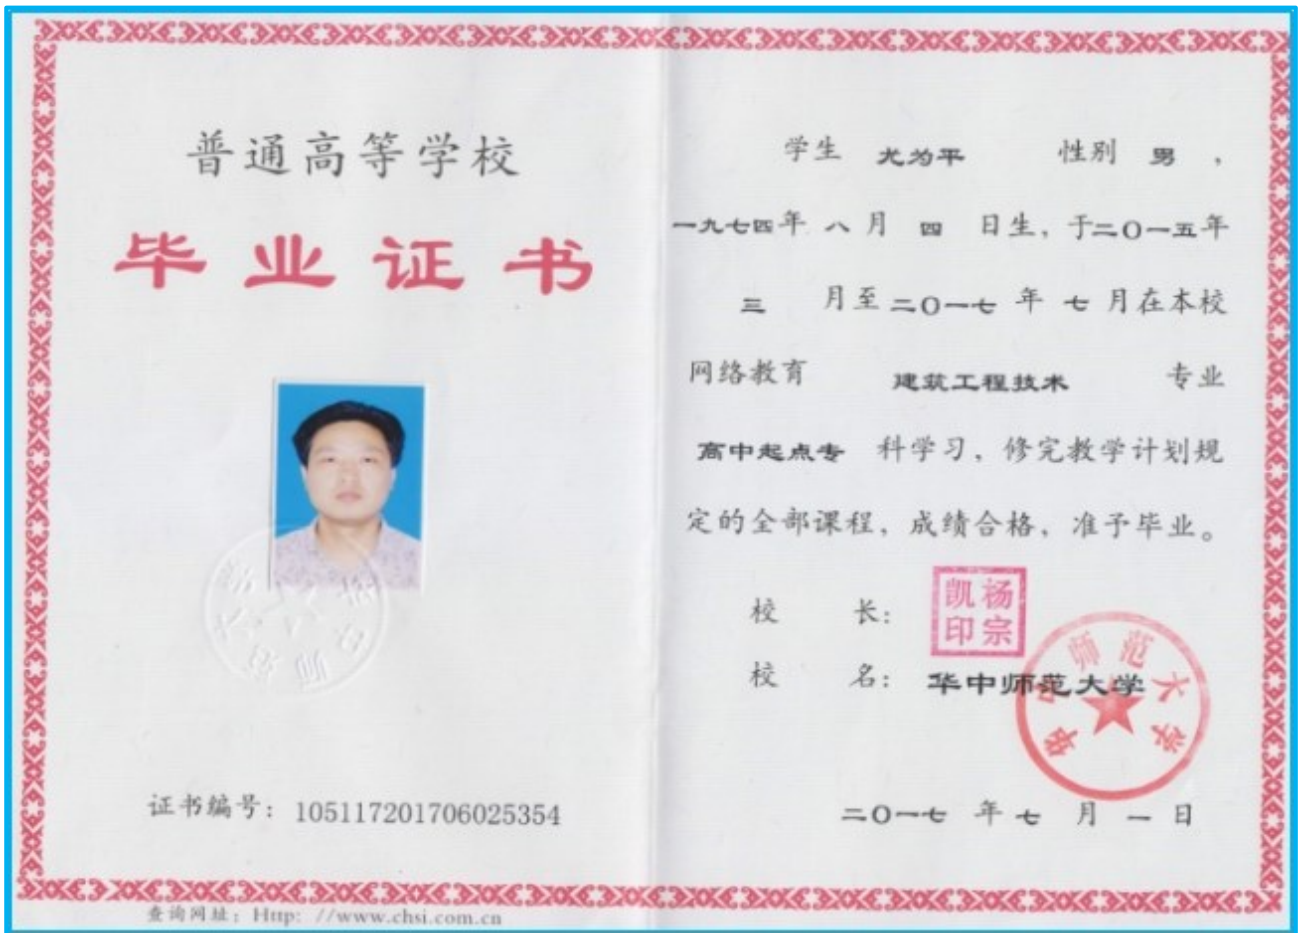 普通高等学校
毕业证书
证书编号：105117201706025354
查询网址：Http: //www.chsi.com.cn
学生 尤为平 性别 男 ，
一九七四年 八 月 四 日生，于二〇一五年
三 月至二〇一七 年 七 月在本校
网络教育 建筑工程技术 专业
高中起点专 科学习，修完教学计划规
定的全部课程，成绩合格，准予毕业。
校 长：
杨宗凯印
校 名： 华中师范大学
华中师范大学
二〇一七 年 七 月 一 日